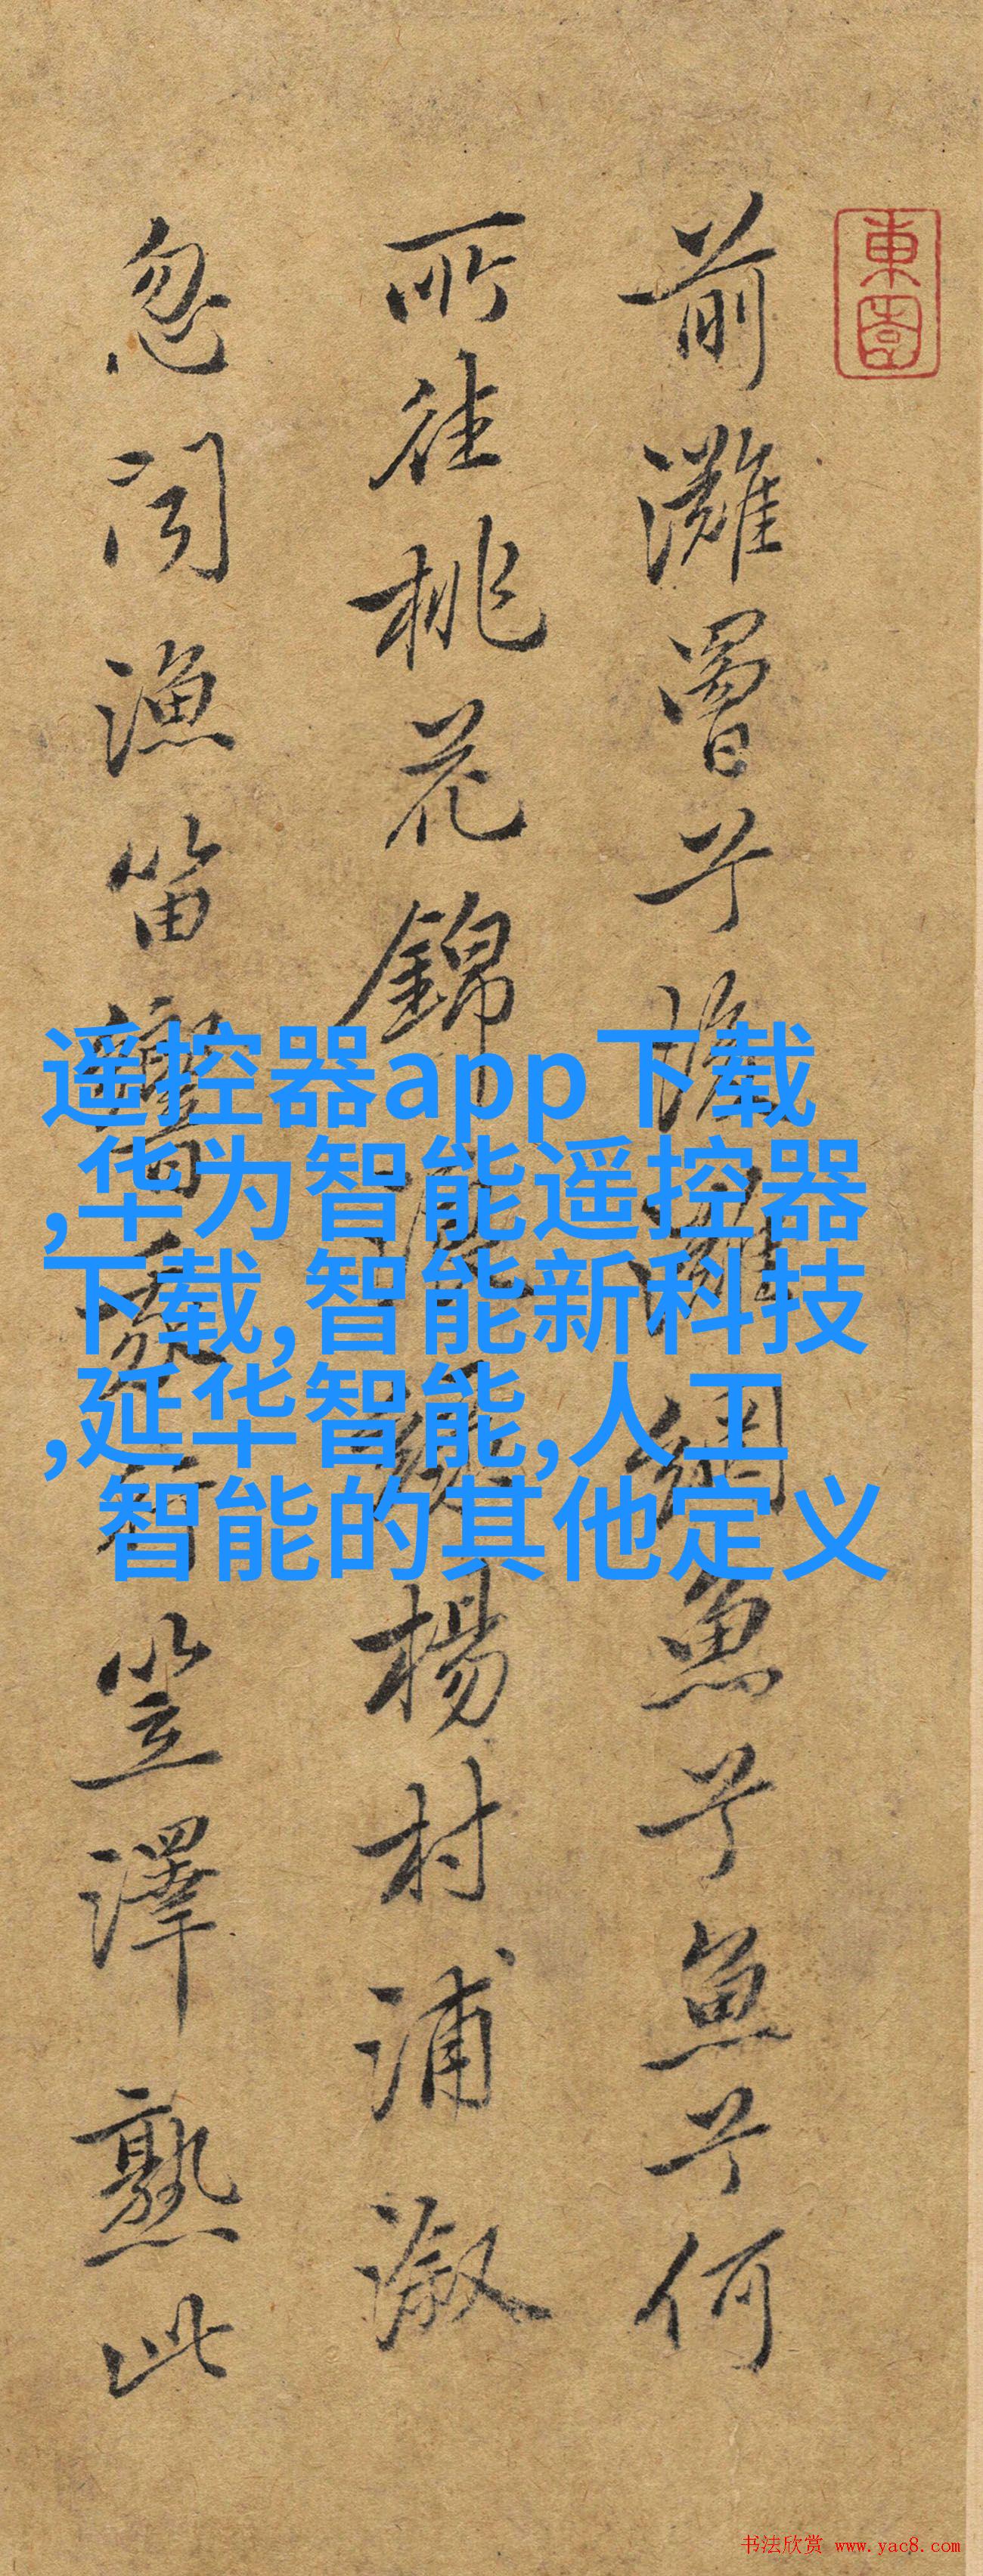 東圖
前灘罾乎灘網魚乎魚乎何
所往桃花錦浪綠楊村浦漵
忽聞漁笛響笠澤熟此
遥控器app下载
,华为智能遥控器
下载,智能新科技
,延华智能,人工
智能的其他定义
书法欣赏 www.yac8.com